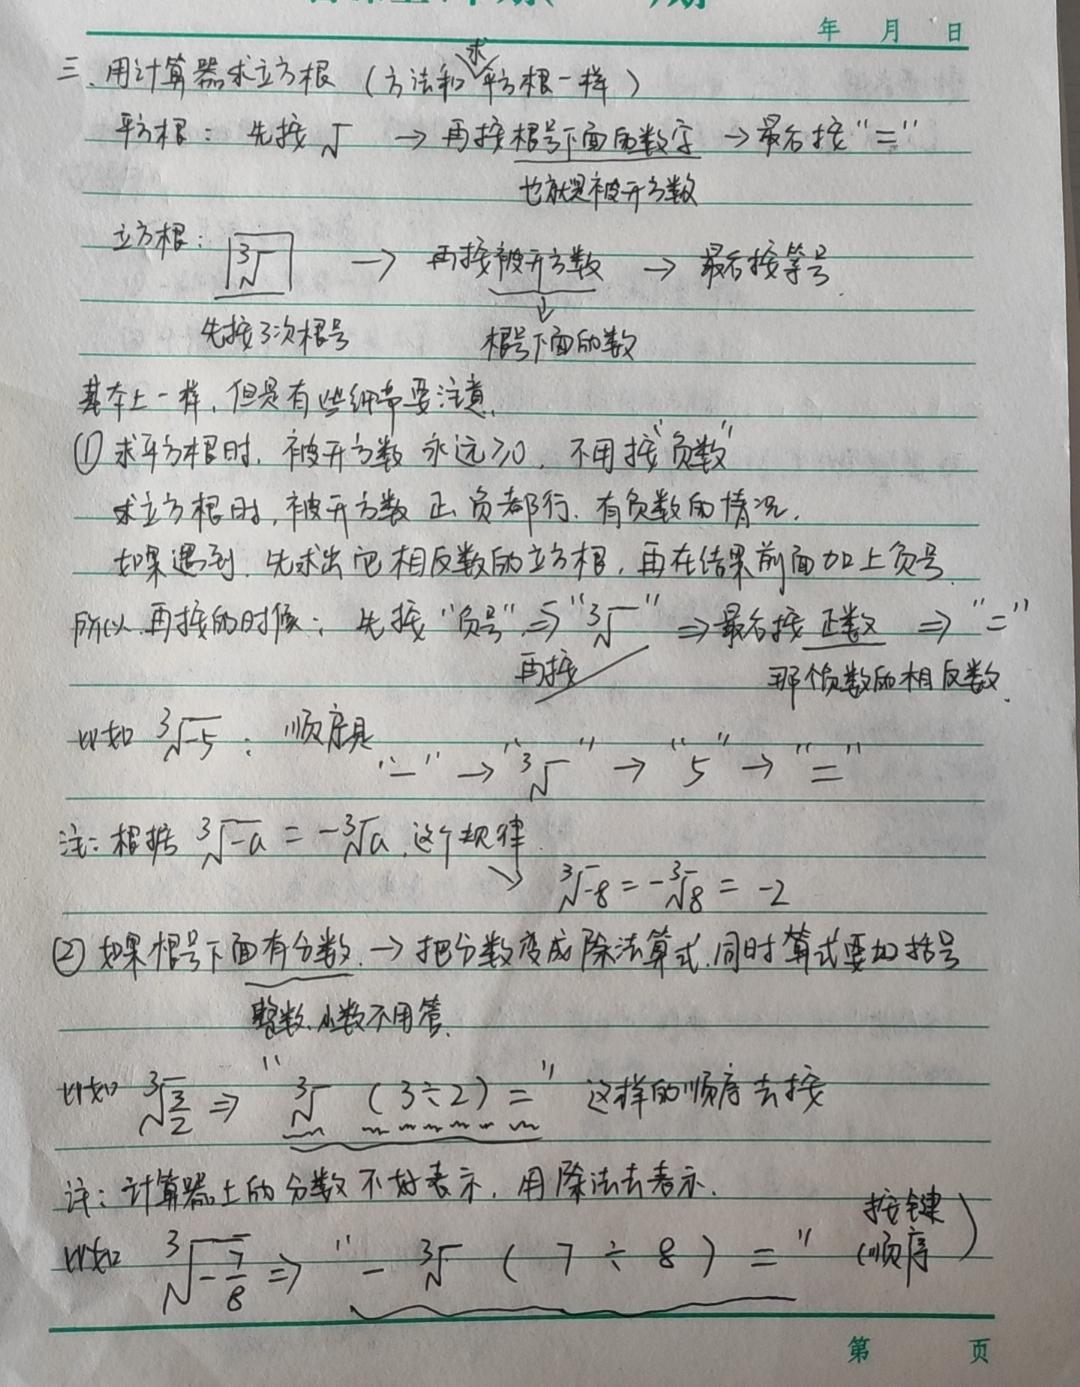 年 月 日
三、用计算器求立方根（方法和求平方根一样）
平方根：先按√ → 再按根号下面的数字 → 最后按“=”
也就是被开方数
立方根：∛ → 再按被开方数 → 最后按等号
先按3次根号 根号下面的数
基本上一样，但是有些细节要注意。
① 求平方根时，被开方数永远≥0，不用按“负数”
求立方根时，被开方数正负都行，有负数的情况，
如果遇到，先求出它相反数的立方根，再在结果前面加上负号.
所以再按的时候：先按“负号”⇒“∛”⇒最后按正数⇒“=”
再按 那个负数的相反数.
比如 ∛-5：顺序是
“-”→“∛”→“5”→“=”
注：根据 ∛-a = -∛a 这个规律.
∛-8 = -∛8 = -2
② 如果根号下面有分数.→把分数变成除法算式.同时算式要加括号
整数、小数不用管.
比如 ∛3/2 ⇒ “∛ (3÷2) =” 这样的顺序去按
注：计算器上的分数不好表示，用除法去表示.
比如 ∛-7/8 ⇒ “- ∛ ( 7 ÷ 8 ) =” (按键顺序)
第 页